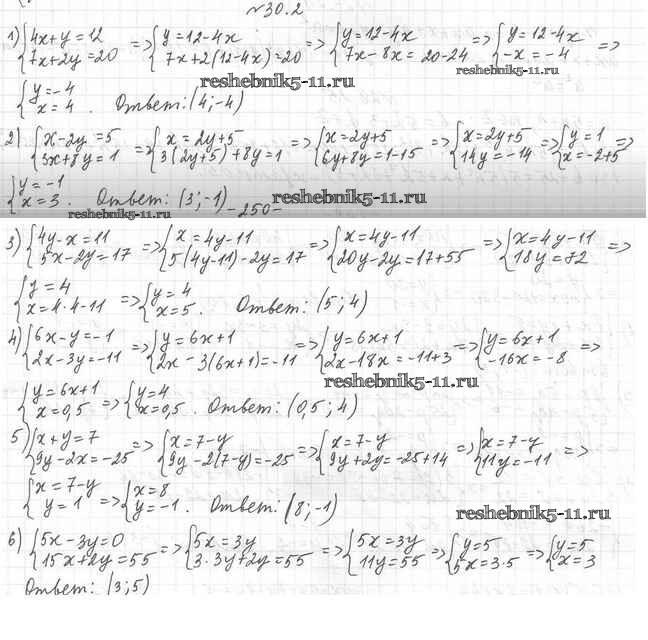 №30.2
1) {4x+y=12 7x+2y=20 => {y=12-4x 7x+2(12-4x)=20 => {y=12-4x 7x-8x=20-24 => {y=12-4x -x=-4 =>
reshebnik5-11.ru
reshebnik5-11.ru
{y=-4 x=4. Ответ: (4;-4)
2) {x-2y=5 3x+8y=1 => {x=2y+5 3(2y+5)+8y=1 => {x=2y+5 6y+8y=1-15 => {x=2y+5 14y=-14 => {y=1 x=-2+5 =>
{y=-1 x=3. Ответ: (3;-1)
reshebnik5-11.ru
-250-
reshebnik5-11.ru
3) {4y-x=11 5x-2y=17 => {x=4y-11 5(4y-11)-2y=17 => {x=4y-11 20y-2y=17+55 => {x=4y-11 18y=72 =>
{y=4 x=4·4-11 => {y=4 x=5. Ответ: (5;4)
4) {6x-y=-1 2x-3y=-11 => {y=6x+1 2x-3(6x+1)=-11 => {y=6x+1 2x-18x=-11+3 => {y=6x+1 -16x=-8 =>
reshebnik5-11.ru
{y=6x+1 x=0,5 => {y=4 x=0,5. Ответ: (0,5;4)
5) {x+y=7 9y-2x=-25 => {x=7-y 9y-2(7-y)=-25 => {x=7-y 9y+2y=-25+14 => {x=7-y 11y=-11 =>
{x=7-y y=1 => {x=8 y=-1. Ответ: (8;-1)
reshebnik5-11.ru
6) {5x-3y=0 15x+2y=55 => {5x=3y 3·3y+2y=55 => {5x=3y 11y=55 => {y=5 5x=3·5 => {y=5 x=3
Ответ: (3;5)